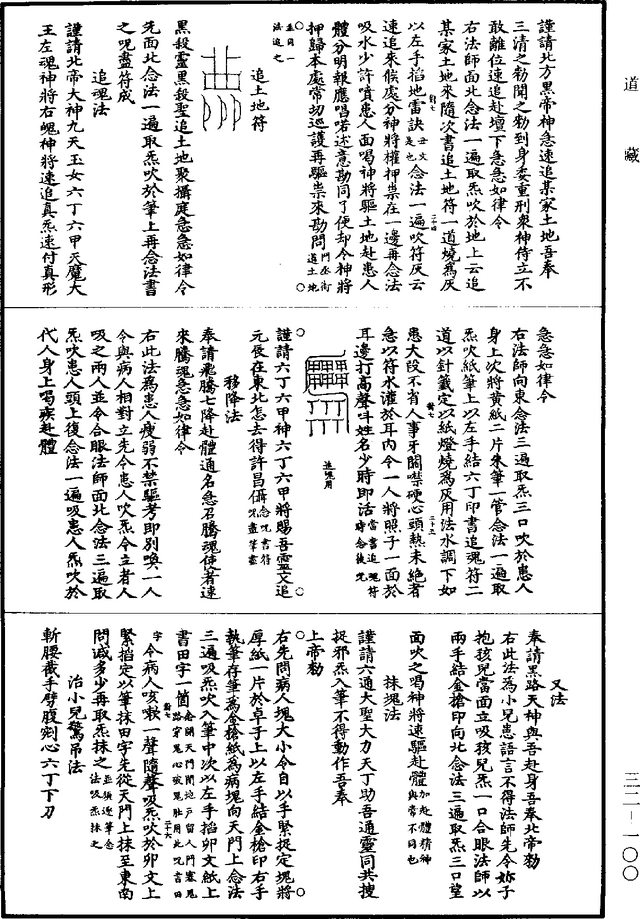 道藏
謹請北方黑帝神急速追某家土地吾奉
三清之勑聞之勑到身委重刑衆神侍立不
敢離位速追赴壇下急急如律令
右法師面北念法一遍取炁吹於地上云追
某家土地來隨次書追土地符一道燒爲灰
以左手掐地雷訣丑文是也念法一遍吹符灰云
速追來候處分神將權押祟在一邊再念法
吸水少許噴患人面喝神將驅土地赴患人
體分明報應唱喏述意勘同了便却令神將
押歸本處常切巡護再驅祟來勘問
追土地符
黑殺靈黑殺聖追土地聚攝度急急如律令
先面北念法一遍取炁吹於筆上再念法書
之呪盡符成
追魂法
謹請北帝大神九天玉女六丁六甲天魔大
王左魂神將右魄神將速追真炁速付真形
急急如律令
右法師向東念法三遍取炁三口吹於患人
身上次將黄紙二片朱筆一管念法一遍取
炁吹紙筆上以左手結六丁印書追魂符二
道以針籤定以紙燈燒爲灰用法水調下如
患大段不省人事牙關噤硬心頭熱未絶者
急以符水灌於耳内令一人將照子一面於
耳邊打高聲叫姓名少時即活當書追魂符時念後呪
追魂用
謹請六丁六甲神六丁六甲將賜吾靈文追
元辰在東北怎去得許昌儸念呪書符呪盡筆盡
移降法
奉請飛騰七降赴體通名急召騰魂使者速
來騰魂急急如律令
右此法爲患人瘦弱不禁驅考即別喚一人
令與病人相對立先令患人吹炁令立者人
吸之兩人並令合眼法師面北念法三遍取
炁吹患人頭上復念法一遍吸患人炁吹於
代人身上喝疾赴體
又法
奉請黑路天神與吾赴身吾奉北帝勑
右此法爲小兒患語言不得法師先令妳子
抱孩兒當面立吸孩兒炁一口合眼法師以
兩手結金搶印向北念法三遍取炁三口望
面吹之喝神將速驅赴體加赴體精神與常不同也
抹塊法
謹請六通大聖大力天丁助吾通靈同共搜
捉邪炁入筆不得動作吾奉
上帝勑
右先問病人塊大小令自以手緊捉定塊將
厚紙一片於卓子上以左手結金搶印右手
執筆存筆爲金搶紙爲病塊向天門上念法
三遍吸炁吹入筆中次以左手掐卯文紙上
書田字一箇念開天門閉地戶留人門塞鬼路穿鬼心破鬼肚用此呪言田字
令病人咳嗽一聲隨聲吸炁吹於卯文上
緊掐定以筆抹田字先從天門上抹至東南
問減多少再取炁抹之並須連筆念法吸炁抹之
治小兒驚吊法
斬腰截手劈腹剜心六丁下刀
三二—一〇〇